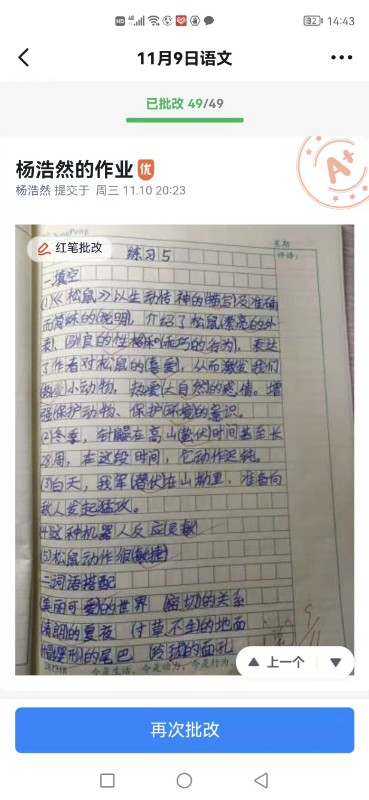 14:43
11月9日语文
已批改 49/49
杨浩然的作业 优
A+
杨浩然 提交于 周三 11.10 20:23
红笔批改
星期
评语:
练习5
一填空
(1)《松鼠》以生动传神的(描写)及准确
而简练的(说明), 介绍了松鼠(漂亮的外
表、驯良的性格和(乖巧的行为), 表达
了作者对松鼠的(喜爱), 从而激发我们
(热爱)小动物, 热爱(大自然)的感情。增
强保护动物、保护(环境)的意识。
(2)冬季, 针鼹在高山(蛰伏)时间甚至长
28周, 在这段时间, 它动作迟钝。
(3)白天, 我军(潜伏)在山林里, 准备向
敌人发起猛攻。
(4)这种机器人反应(灵敏)
(5)松鼠动作很(敏捷)
二词语搭配
(美丽可爱)的世界 (密切)的关系
(晴朗)的夏夜 (寸草不生)的地面
(帽缨形)的尾巴 的面孔
上一个
再次批改